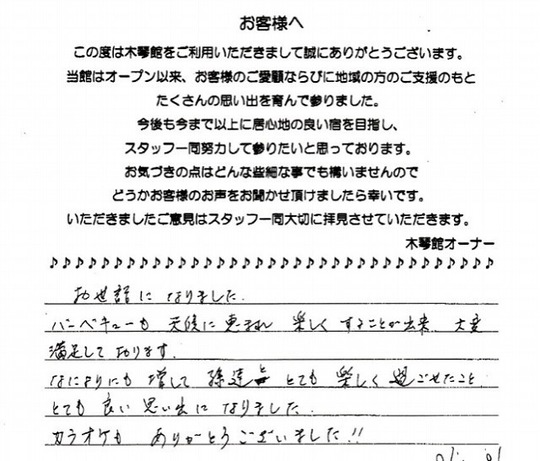 お客様へ
この度は木琴館をご利用いただきまして誠にありがとうございます。
当館はオープン以来、お客様のご愛顧ならびに地域の方のご支援のもと
たくさんの思い出を育んで参りました。
今後も今まで以上に居心地の良い宿を目指し、
スタッフ一同努力して参りたいと思っております。
お気づきの点はどんな些細な事でも構いませんので
どうかお客様のお声をお聞かせ頂けましたら幸いです。
いただきましたご意見はスタッフ一同大切に拝見させていただきます。
木琴館オーナー
お世話になりました.
バーベキューも 天候に恵まれ 楽しくすることが出来、大変
満足しております.
なによりにも増して 孫達と とても 楽しく過ごせたこと
とても良い思い出になりました.
カラオケも ありがとうございました!!